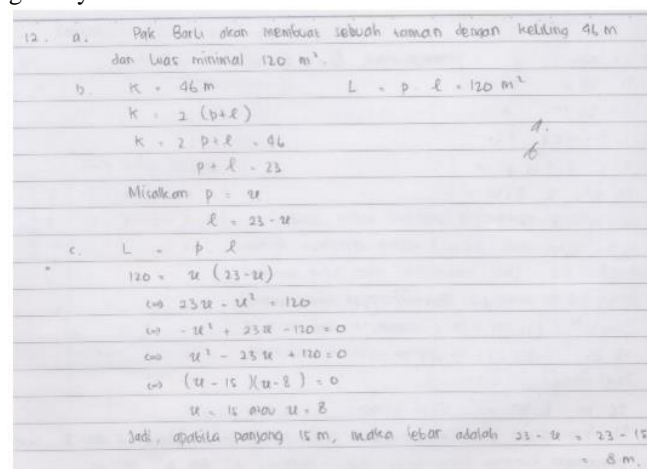 12. a. Pak Barli akan membuat sebuah taman dengan keliling 46 m
dan luas minimal 120 m².
b. K = 46 m L = p . l = 120 m²
K = 2 (p+l)
K = 2 p+l = 46
p + l = 23
Misalkan p = x
l = 23 - x
c. L = p l
120 = x (23-x)
⇔ 23x - x² = 120
⇔ - x² + 23x - 120 = 0
⇔ x² - 23x + 120 = 0
⇔ (x - 15)(x - 8) = 0
x = 15 atau x = 8
Jadi, apabila panjang 15 m, maka lebar adalah 23 - x = 23 - 15
= 8 m.